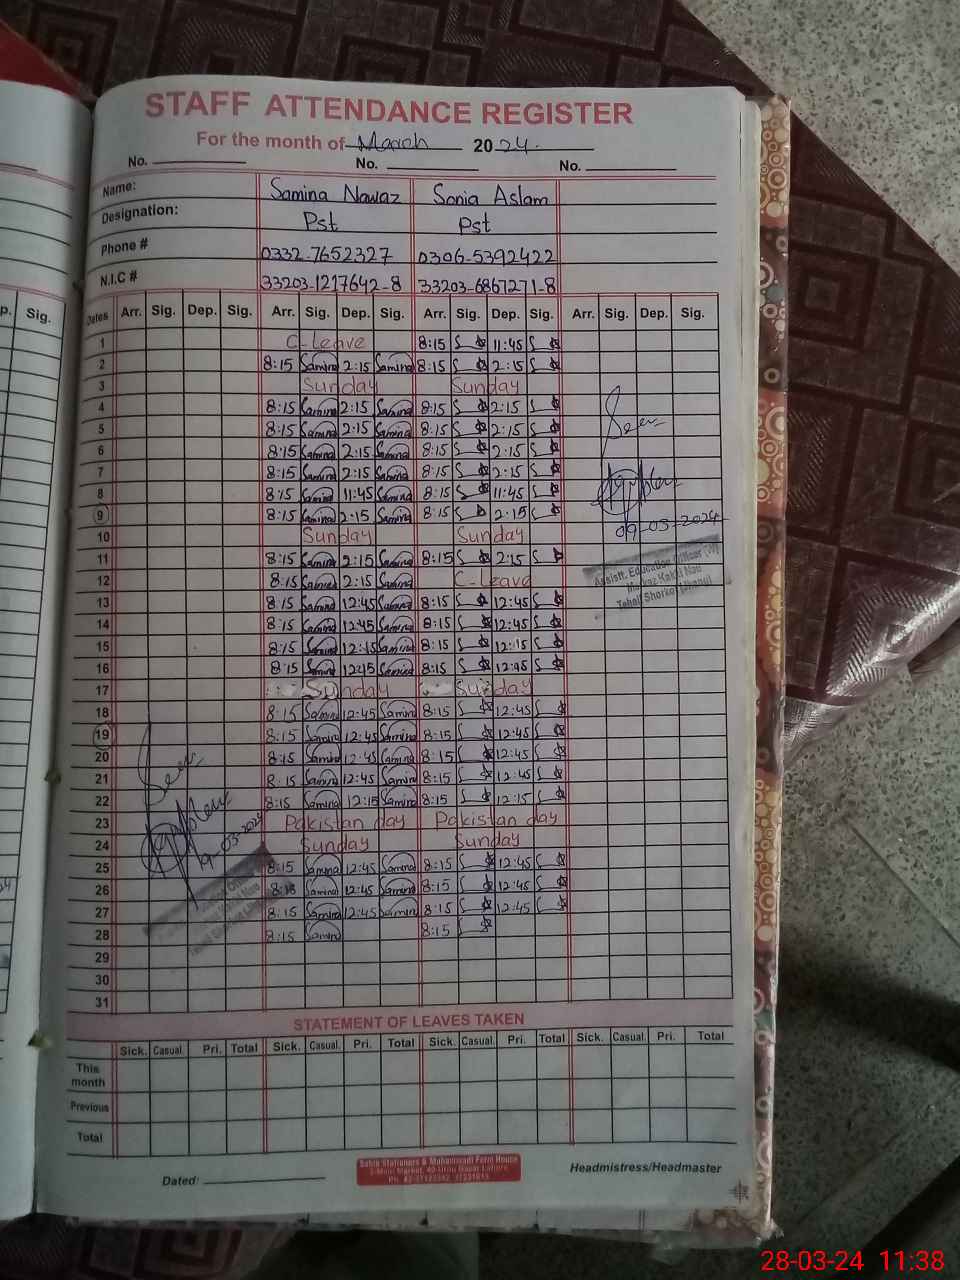 STAFF ATTENDANCE REGISTER
For the month of March 2024.
No. No. No.
Name: Samina Nawaz Sonia Aslam
Designation: Pst Pst
Phone # 0332-7652327 0306-5392422
N.I.C # 33203-1217642-8 33203-6867271-8
p. Sig. Dates Arr. Sig. Dep. Sig. Arr. Sig. Dep. Sig. Arr. Sig. Dep. Sig. Arr. Sig. Dep. Sig.
1 C-Leave 8:15 S 11:45 S
2 8:15 Samina 2:15 Samina 8:15 S 2:15 S
3 Sunday Sunday
4 8:15 Samina 2:15 Samina 8:15 S 2:15 S
5 8:15 Samina 2:15 Samina 8:15 S 2:15 S
6 8:15 Samina 2:15 Samina 8:15 S 2:15 S
7 8:15 Samina 2:15 Samina 8:15 S 2:15 S
8 8:15 Samina 11:45 Samina 8:15 S 11:45 S
9 8:15 Samina 2:15 Samina 8:15 S 2:15 S
10 Sunday Sunday
11 8:15 Samina 2:15 Samina 8:15 S 2:15 S
12 8:15 Samina 2:15 Samina C-Leave
13 8:15 Samina 12:45 Samina 8:15 S 12:45 S
14 8:15 Samina 12:45 Samina 8:15 S 12:45 S
15 8:15 Samina Samina 8:15 S 12:15 S
16 8:15 Samina 12:45 Samina 8:15 S 12:45 S
17 Sunday Sunday
18 8:15 Samina 12:45 Samina 8:15 S 12:45 S
19 8:15 Samina 12:45 Samina 8:15 S 12:45 S
20 8:15 Samina 12:45 Samina 8:15 S 12:45 S
21 8:15 Samina 12:45 Samina 8:15 S 12:45 S
22 8:15 Samina 12:15 Samina 8:15 S 12:15 S
23 Pakistan day Pakistan day
24 Sunday Sunday
25 8:15 Samina 12:45 Samina 8:15 S 12:45 S
26 8:15 Samina 12:45 Samina 8:15 S 12:45 S
27 8:15 Samina 12:45 Samina 8:15 S 12:45 S
28 8:15 Samina 8:15 S
29
30
31
Seen
09-03-2024
Assistt. Education Officer (W)
Markaz Kakki Nau
Tehsil Shorkot (Jhang)
Seen
19-03-2024
STATEMENT OF LEAVES TAKEN
Sick. Casual. Pri. Total Sick. Casual. Pri. Total Sick. Casual. Pri. Total Sick. Casual. Pri. Total
This month
Previous
Total
Dated:
Sabin Stationers & Mohammadi Form House
40-Urdu Bazar Lahore
Headmistress/Headmaster
28-03-24 11:38